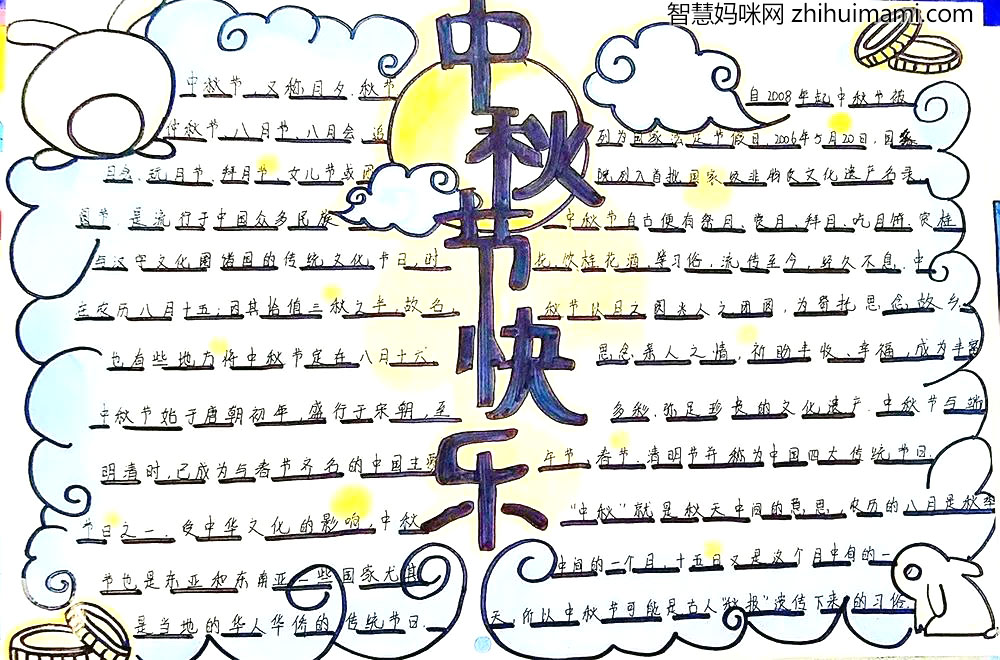 智慧妈咪网 zhihuimami.com
中秋节快乐
中秋节，又称月夕、秋节
仲秋节、八月节、八月会、追
月节、玩月节、拜月节、女儿节或团
圆节，是流行于中国众多民族
与汉字文化圈诸国的传统文化节日，时
在农历八月十五；因其恰值三秋之半，故名，
也有些地方将中秋节定在八月十六
中秋节始于唐朝初年，盛行于宋朝，至
明清时，已成为与春节齐名的中国主要
节日之一。受中华文化的影响，中秋
节也是东亚和东南亚一些国家尤其
是当地的华人华侨的传统节日。
自2008年起中秋节被
列为国家法定节假日。2006年5月20日，国务
院列入首批国家级非物质文化遗产名录。
中秋节自古便有祭月、赏月、拜月、吃月饼、赏桂
花、饮桂花酒等习俗，流传至今，经久不息。中
秋节以月之圆兆人之团圆，为寄托思念故乡，
思念亲人之情，祈盼丰收、幸福，成为丰富
多彩、弥足珍贵的文化遗产。中秋节与端
午节、春节、清明节并称为中国四大传统节日。
“中秋”就是秋天中间的意思，农历的八月是秋季
中间的一个月，十五日又是这个月中自的一
天，所以中秋节可能是古人“秋报”流传下来的习俗。